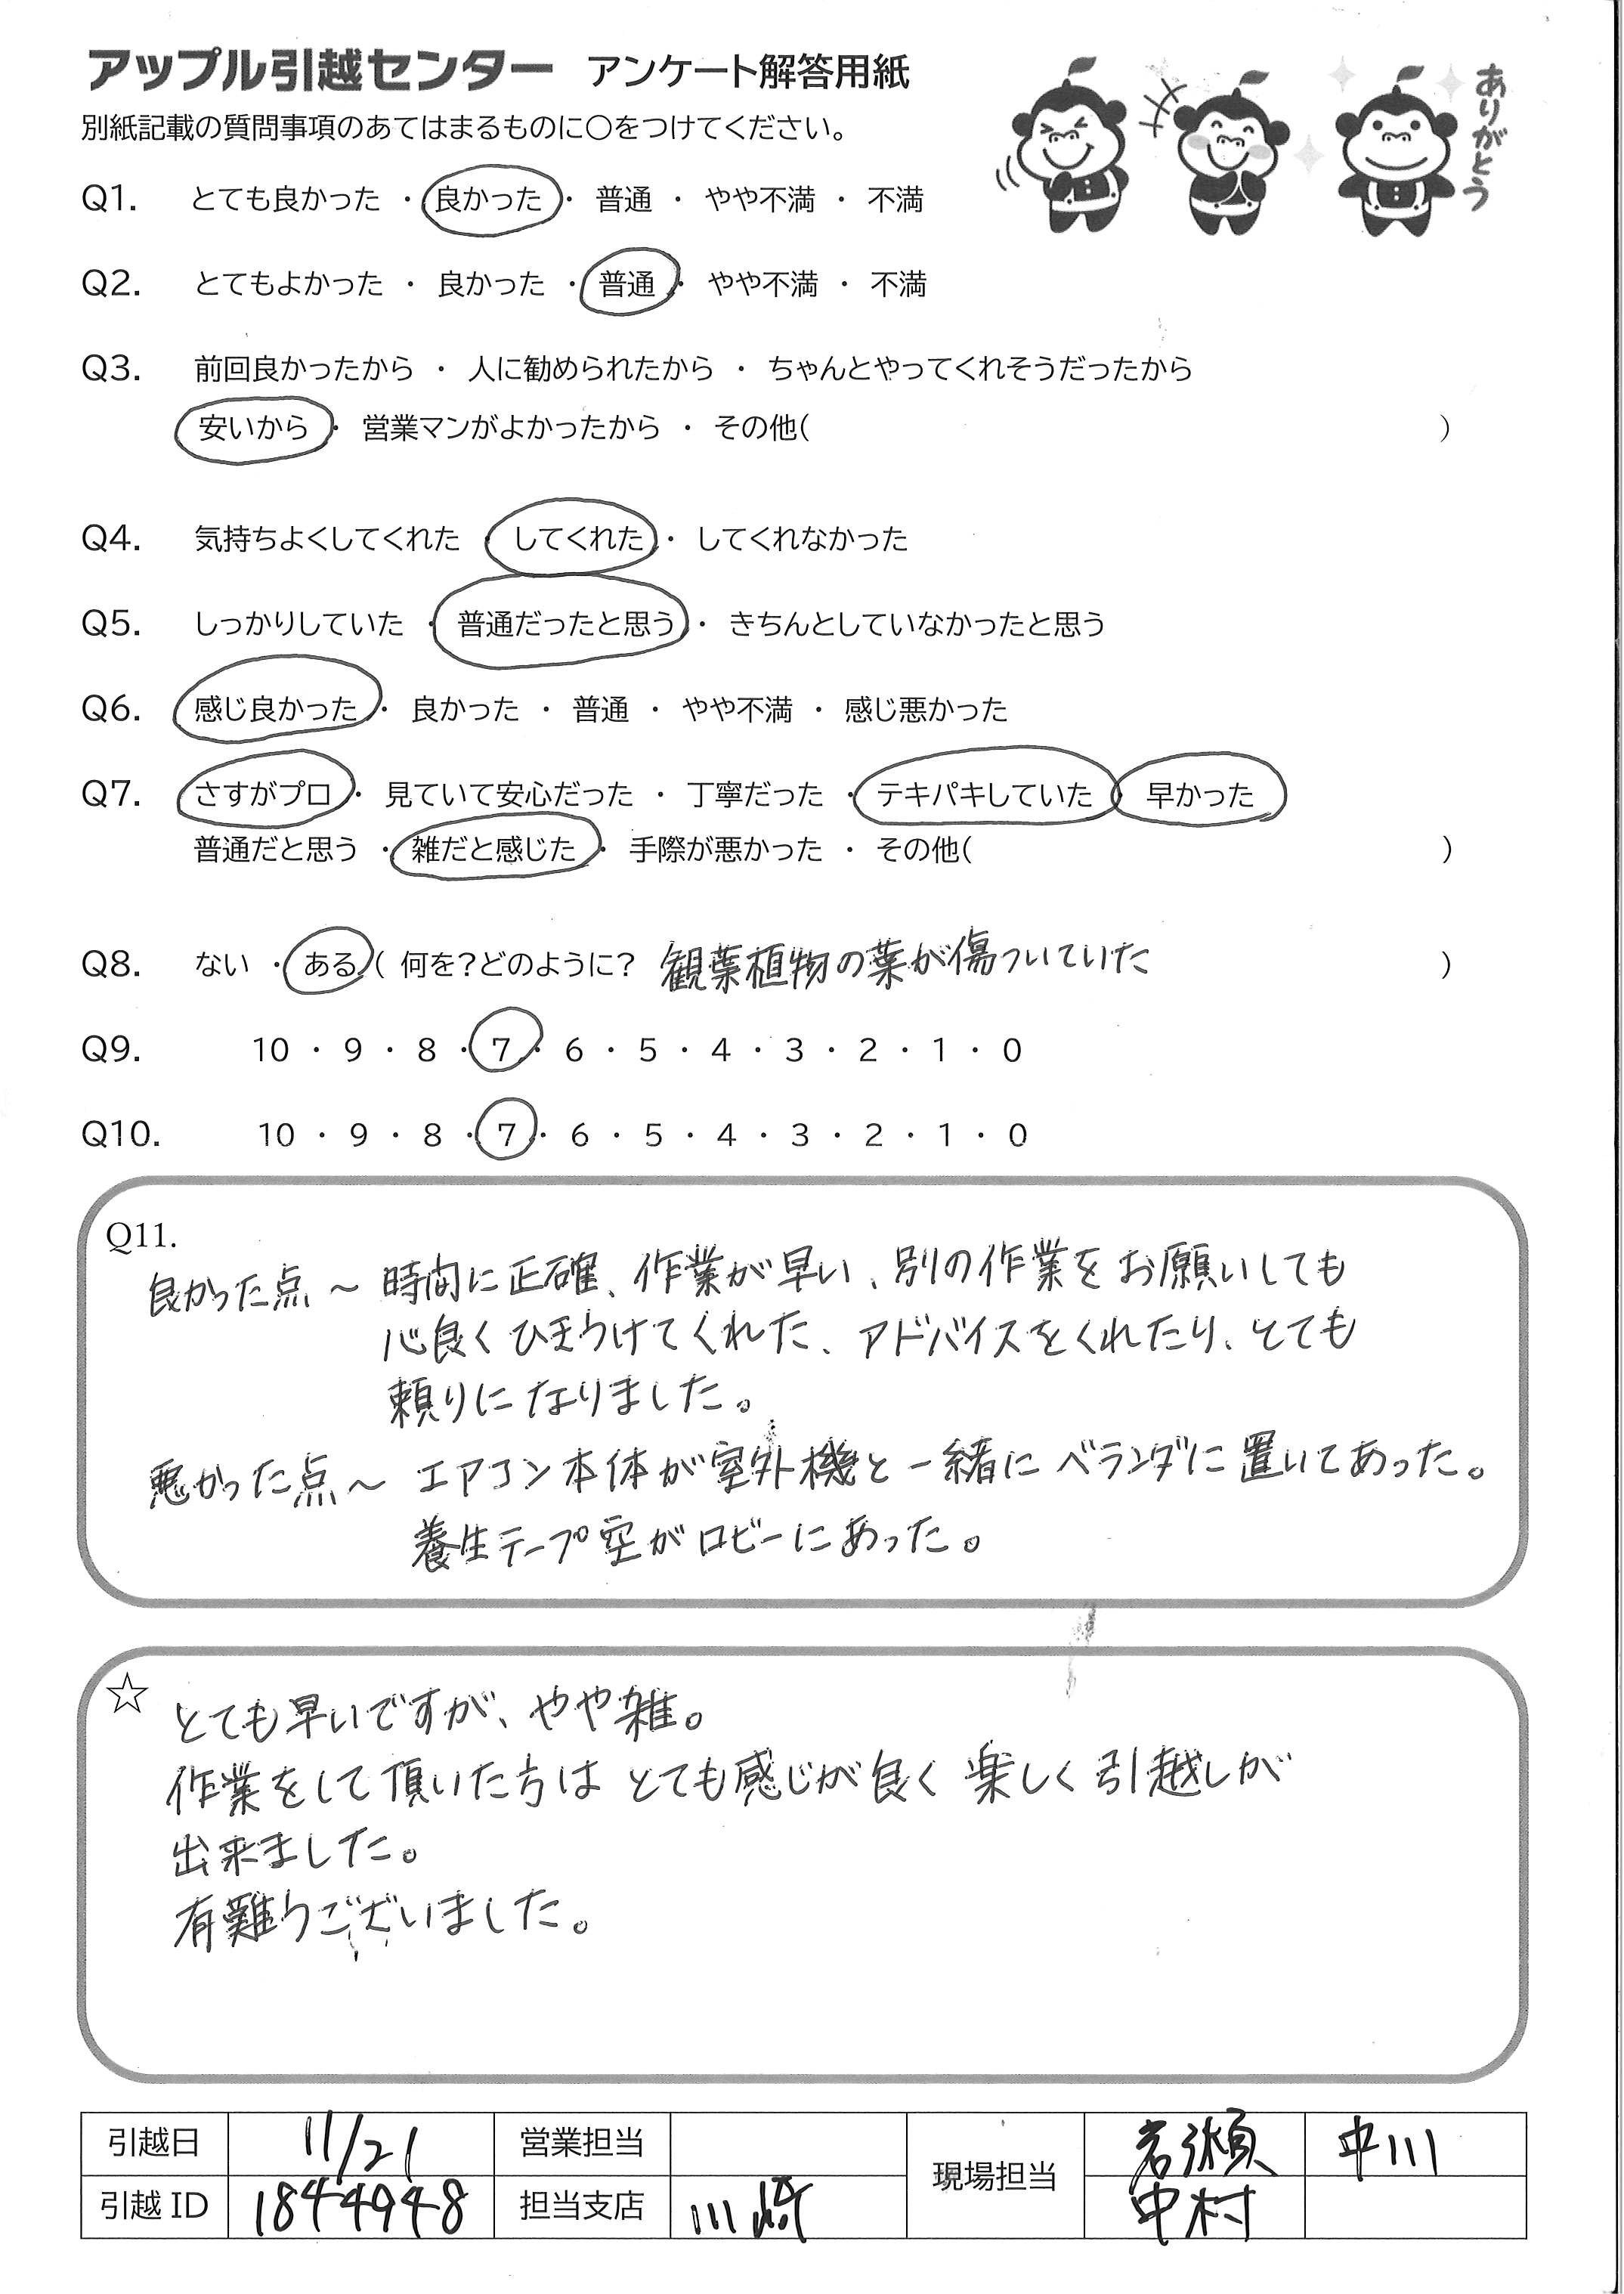 アップル引越センター アンケート解答用紙
ありがとう
別紙記載の質問事項のあてはまるものに○をつけてください。
Q1. とても良かった ・ 良かった ・ 普通 ・ やや不満 ・ 不満
Q2. とてもよかった ・ 良かった ・ 普通 ・ やや不満 ・ 不満
Q3. 前回良かったから ・ 人に勧められたから ・ ちゃんとやってくれそうだったから
安いから ・ 営業マンがよかったから ・ その他( )
Q4. 気持ちよくしてくれた ・ してくれた ・ してくれなかった
Q5. しっかりしていた ・ 普通だったと思う ・ きちんとしていなかったと思う
Q6. 感じ良かった ・ 良かった ・ 普通 ・ やや不満 ・ 感じ悪かった
Q7. さすがプロ ・ 見ていて安心だった ・ 丁寧だった ・ テキパキしていた ・ 早かった
普通だと思う ・ 雑だと感じた ・ 手際が悪かった ・ その他( )
Q8. ない ・ ある ( 何を?どのように? 観葉植物の葉が傷ついていた )
Q9. 10 ・ 9 ・ 8 ・ 7 ・ 6 ・ 5 ・ 4 ・ 3 ・ 2 ・ 1 ・ 0
Q10. 10 ・ 9 ・ 8 ・ 7 ・ 6 ・ 5 ・ 4 ・ 3 ・ 2 ・ 1 ・ 0
Q11.
良かった点～ 時間に正確、作業が早い、別の作業をお願いしても
心良くひきうけてくれた、アドバイスをくれたり、とても
頼りになりました。
悪かった点～ エアコン本体が室外機と一緒にベランダに置いてあった。
養生テープ空がロビーにあった。
☆ とても早いですが、やや雑。
作業をして頂いた方は とても感じが良く 楽しく引越しが
出来ました。
有難うございました。
引越日 11/21 営業担当 現場担当 岩瀬 中川
引越ID 1844948 担当支店 川崎 中村